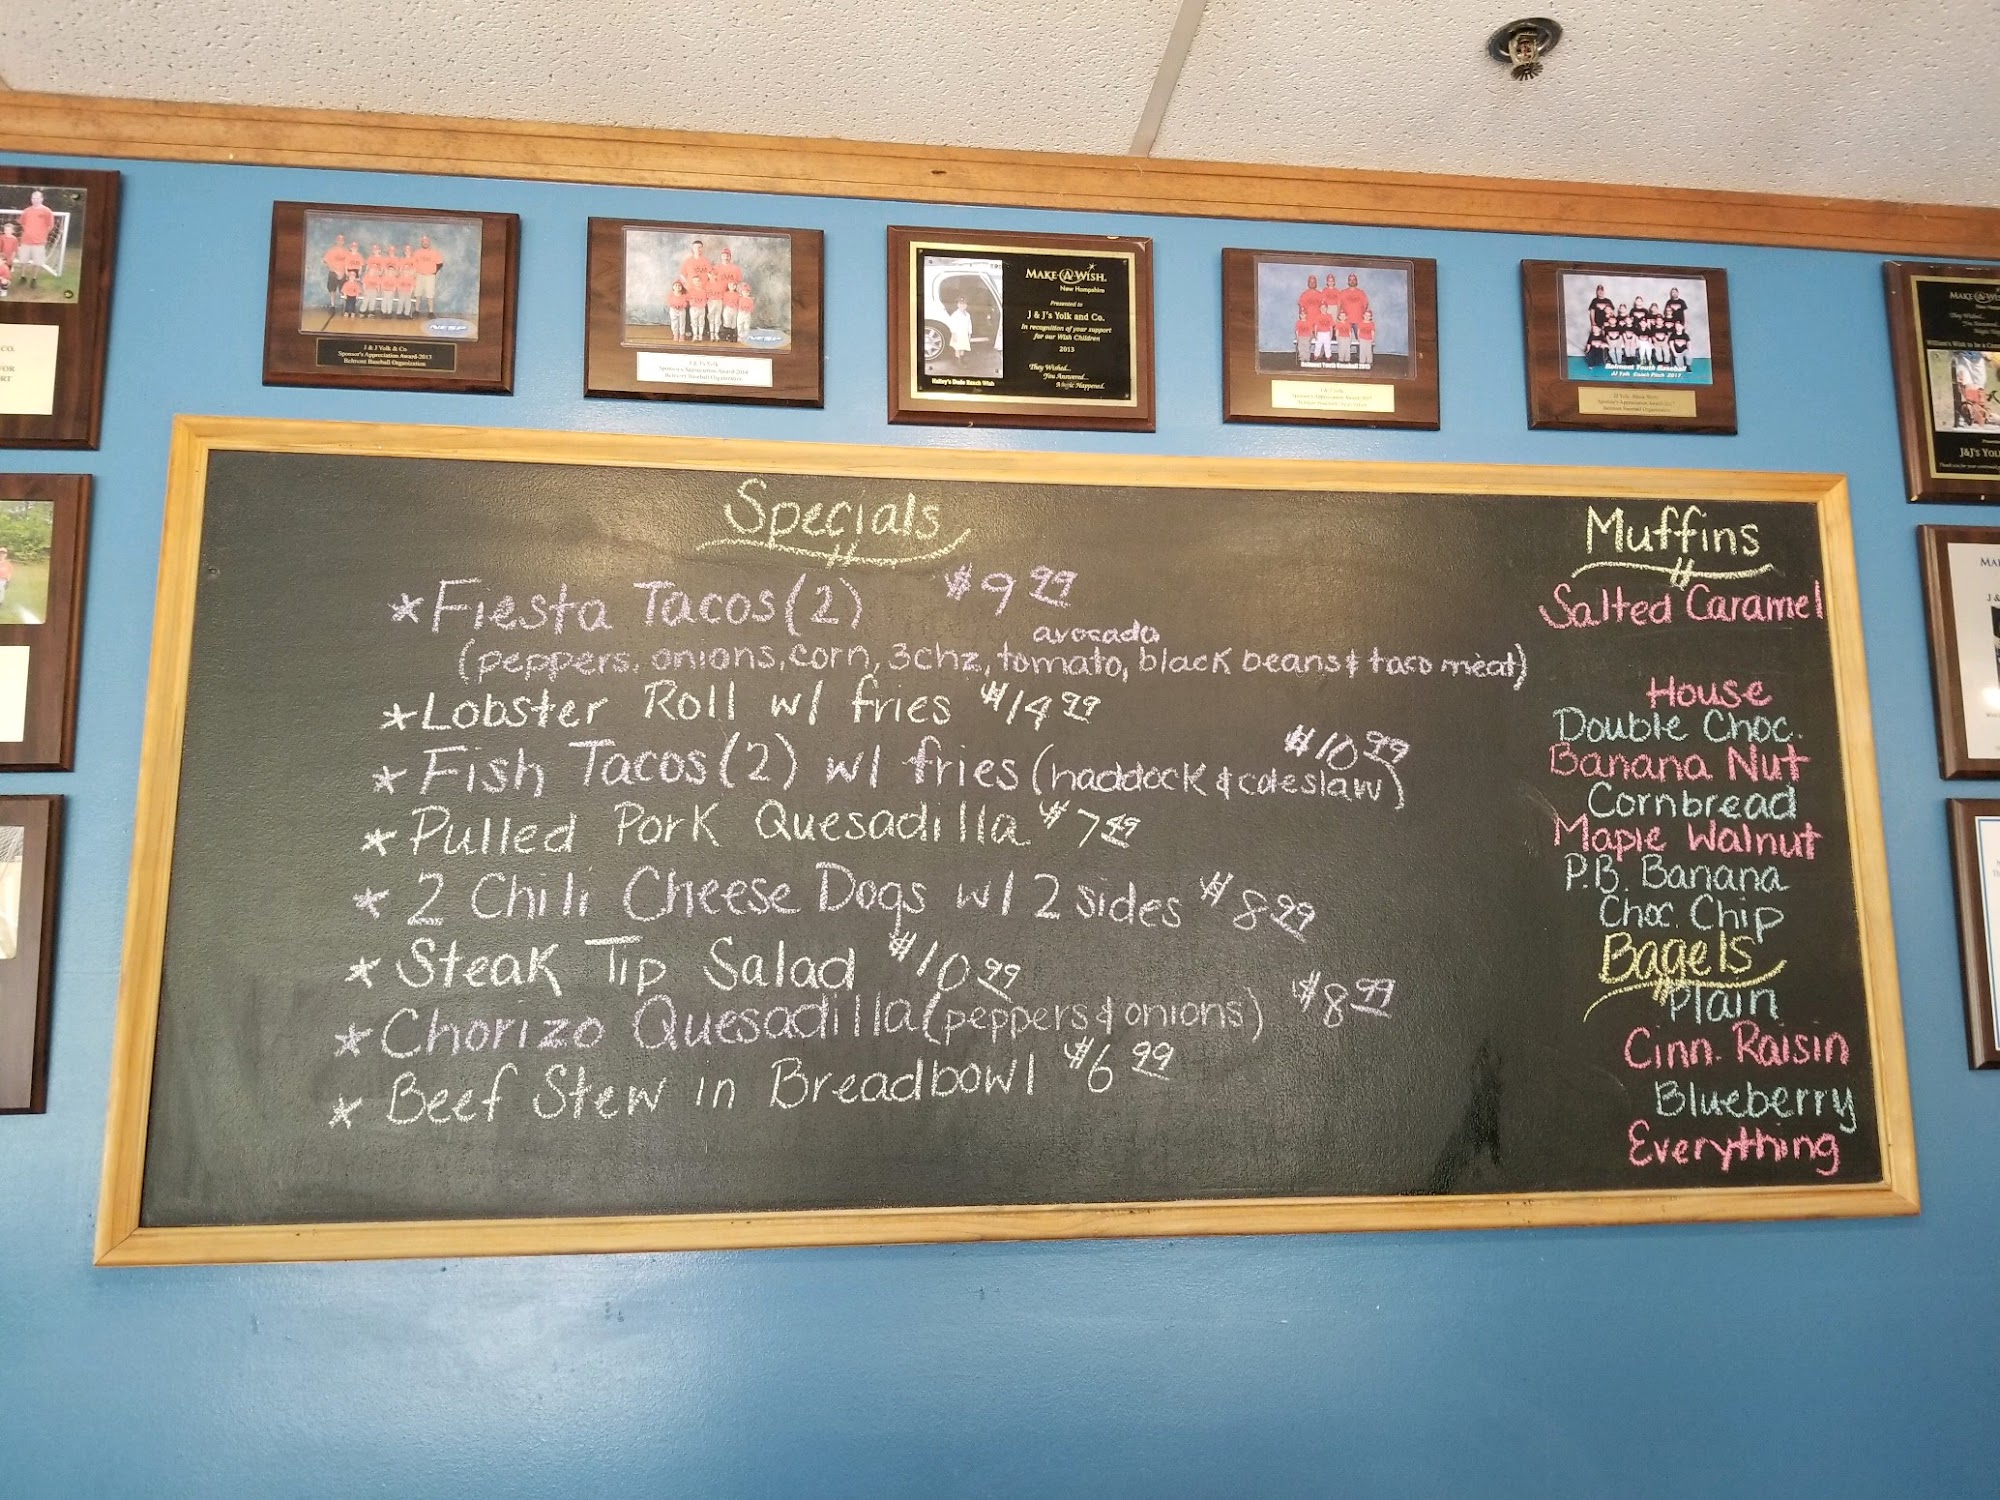 J & J Yolk & Co
Sponsor's Appreciation Award-2013
Belmont Baseball Organization
Sponsor's Appreciation Award 2014
Belmont Baseball Organization
MAKE-A-WISH.
New Hampshire
Presented to
J & J's Yolk and Co.
In recognition of your support
for our Wish Children
2013
They Wished...
You Answered...
Magic Happened.
Belmont Youth Baseball 2015
Belmont Youth Baseball
JJ Yolk Coach Pitch 2017
Belmont Baseball Organization
MAKE-A-WISH
New Ham
They Wished...
J&J's YOL
CO.
FOR
RT
MAK
J &
Specials
*Fiesta Tacos (2) $9.99
avocado
(peppers, onions, corn, 3chz, tomato, black beans & taco meat)
*Lobster Roll w/ fries $14.99
*Fish Tacos (2) w/ fries (haddock & coleslaw) $10.99
*Pulled Pork Quesadilla $7.49
*2 Chili Cheese Dogs w/ 2 sides $8.99
*Steak Tip Salad $10.99
*Chorizo Quesadilla (peppers & onions) $8.99
*Beef Stew in Breadbowl $6.99
Muffins
Salted Caramel
House
Double Choc.
Banana Nut
Cornbread
Maple Walnut
P.B. Banana
Choc. Chip
Bagels
Plain
Cinn. Raisin
Blueberry
Everything